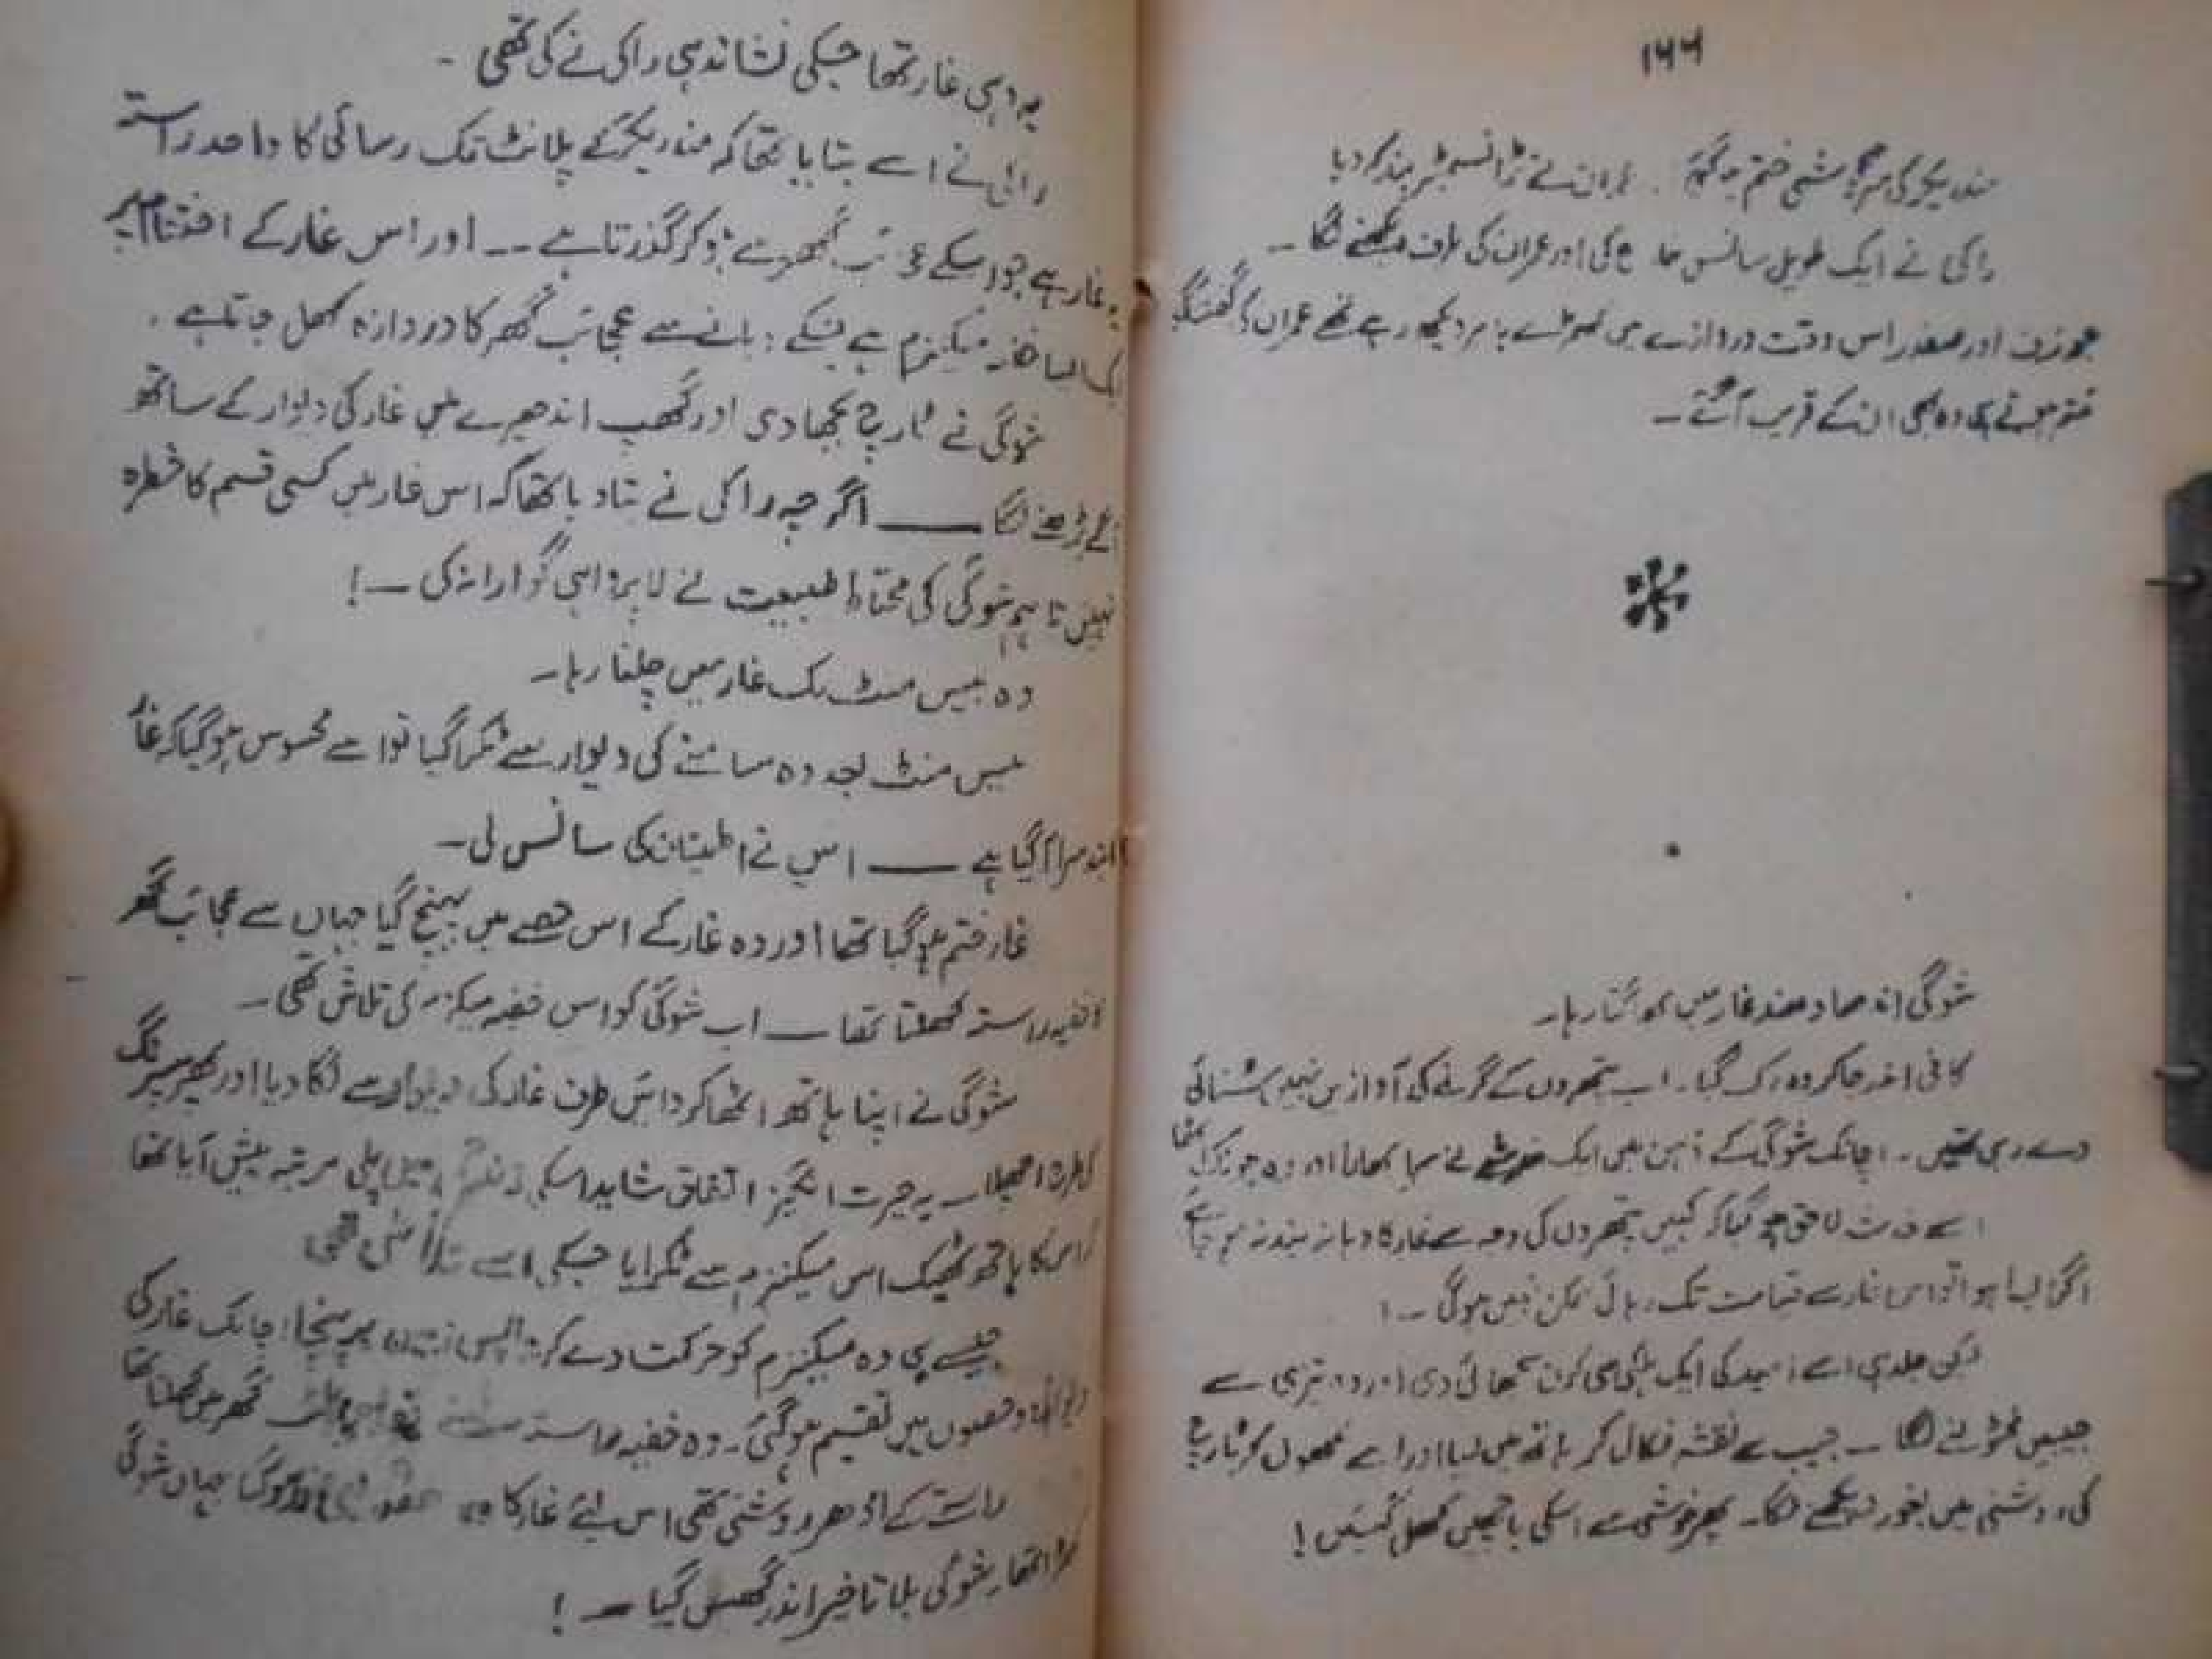 ۱۶۶
مندریکر کی سرگوشی ختم ہو گئی . عمران نے ٹرانسمیٹر بند کر دیا
راکی نے ایک طویل سانس خارج کی اور عمران کی طرف دیکھنے لگا ۔
جوزف اور صفدر اس وقت دروازے میں کھڑے باہر دیکھ رہے تھے عمران کی گفتگو
ختم ہوتے ہی وہ بھی ان کے قریب آ گئے ۔
شوگی اندھا دھند غار میں بھاگتا رہا ۔
کافی اندر جا کر وہ رک گیا ۔ اب پتھروں کے گرنے کی آوازیں نہیں سنائی
دے رہی تھیں ۔ اچانک شوگی کے ذہن میں ایک خدشے نے سر ابھارا اور وہ چونک اٹھا
اسے خدشہ لاحق ہو گیا کہ کہیں پتھروں کی وجہ سے غار کا دہانہ بند نہ ہو جائے
اگر ایسا ہوا تو اس غار سے قیامت تک رہائی ممکن نہیں ہو گی ۔ !
لیکن جلد ہی اسے امید کی ایک ہلکی سی کرن سجھائی دی اور وہ تیزی سے
جیبیں ٹٹولنے لگا ۔ جیب سے نقشہ نکال کر ہاتھ میں لیا اور اسے کھول کر ٹارچ
کی روشنی میں بغور دیکھنے لگا ۔ پھر خوشی سے اسکی باچھیں کھل گئیں !
یہ وہی غار تھا جسکی نشاندہی راکی نے کی تھی ۔
راکی نے اسے بتایا تھا کہ مندریکر کے پلانٹ تک رسائی کا واحد راستہ
یہ غار ہے جو اسکے عجائب گھر سے ہو کر گذرتا ہے ۔۔ اور اس غار کے اختتام پر
ایک ایسا خفیہ میکنزم ہے جسکے دبانے سے عجائب گھر کا دروازہ کھل جاتا ہے .
شوگی نے ٹارچ بجھا دی اور گھپ اندھیرے میں غار کی دیوار کے ساتھ
آگے بڑھنے لگا ـــــ اگرچہ راکی نے بتا دیا تھا کہ اس غار میں کسی قسم کا خطرہ
نہیں تاہم شوگی کی محتاط طبیعیت نے لاپرواہی گوارا نہ کی ۔ !
وہ بیس منٹ تک غار میں چلتا رہا ۔
بیس منٹ بعد وہ سامنے کی دیوار سے ٹکرا گیا تو اسے محسوس ہو گیا کہ غار
کا اندر سرا آ گیا ہے ـــ اس نے اطمینان کی سانس لی ۔
غار ختم ہو گیا تھا اور وہ غار کے اس حصے میں پہنچ گیا جہاں سے عجائب گھر
کا خفیہ راستہ کھلتا تھا ـــ اب شوگی کو اس خفیہ میکنزم کی تلاش تھی ۔
شوگی نے اپنا ہاتھ اٹھا کر دائیں طرف غار کی دیوار سے لگا دیا اور پھر سپرنگ
کی طرح اچھلا ۔ یہ حیرت انگیز اتفاق شاید اسکی زندگی میں پہلی مرتبہ پیش آیا تھا
کہ اس کا ہاتھ ٹھیک اس میکنزم سے ٹکرایا جسکی اسے تلاش تھی
جیسے ہی وہ میکنزم کو حرکت دے کر واپس پہنچا اچانک غار کی
دیوار دو حصوں میں تقسیم ہو گئی ۔ وہ خفیہ راستہ سامنے تھا جو عجائب گھر میں کھلتا تھا
راستے کے ادھر روشنی تھی اس لئے غار کا وہ حصہ بھی روشن ہو گیا جہاں شوگی
کھڑا تھا ۔ شوگی بلا تاخیر اندر گھس گیا ۔ !